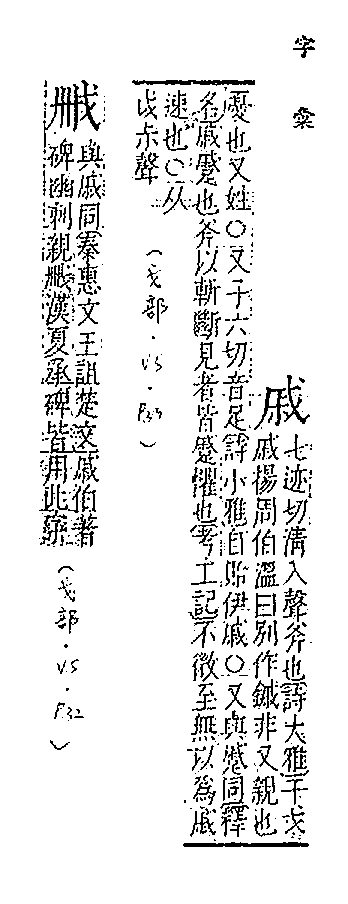 字彙
戚
七迹切清入聲斧也詩大雅干戈
戚揚周伯溫曰別作鏚非又親也
憂也又姓○又子六切音足詩小雅自貽伊戚○又與蹙同釋
名戚蹙也斧以斬斷見者皆蹙懼也考工記不微至無以為戚
速也○从
戉尗聲
(戈部.V5.P33)
與戚同秦惠文王詛楚文戚伯著
碑幽刺親漢夏承碑皆用此
(戈部.V5.P32)